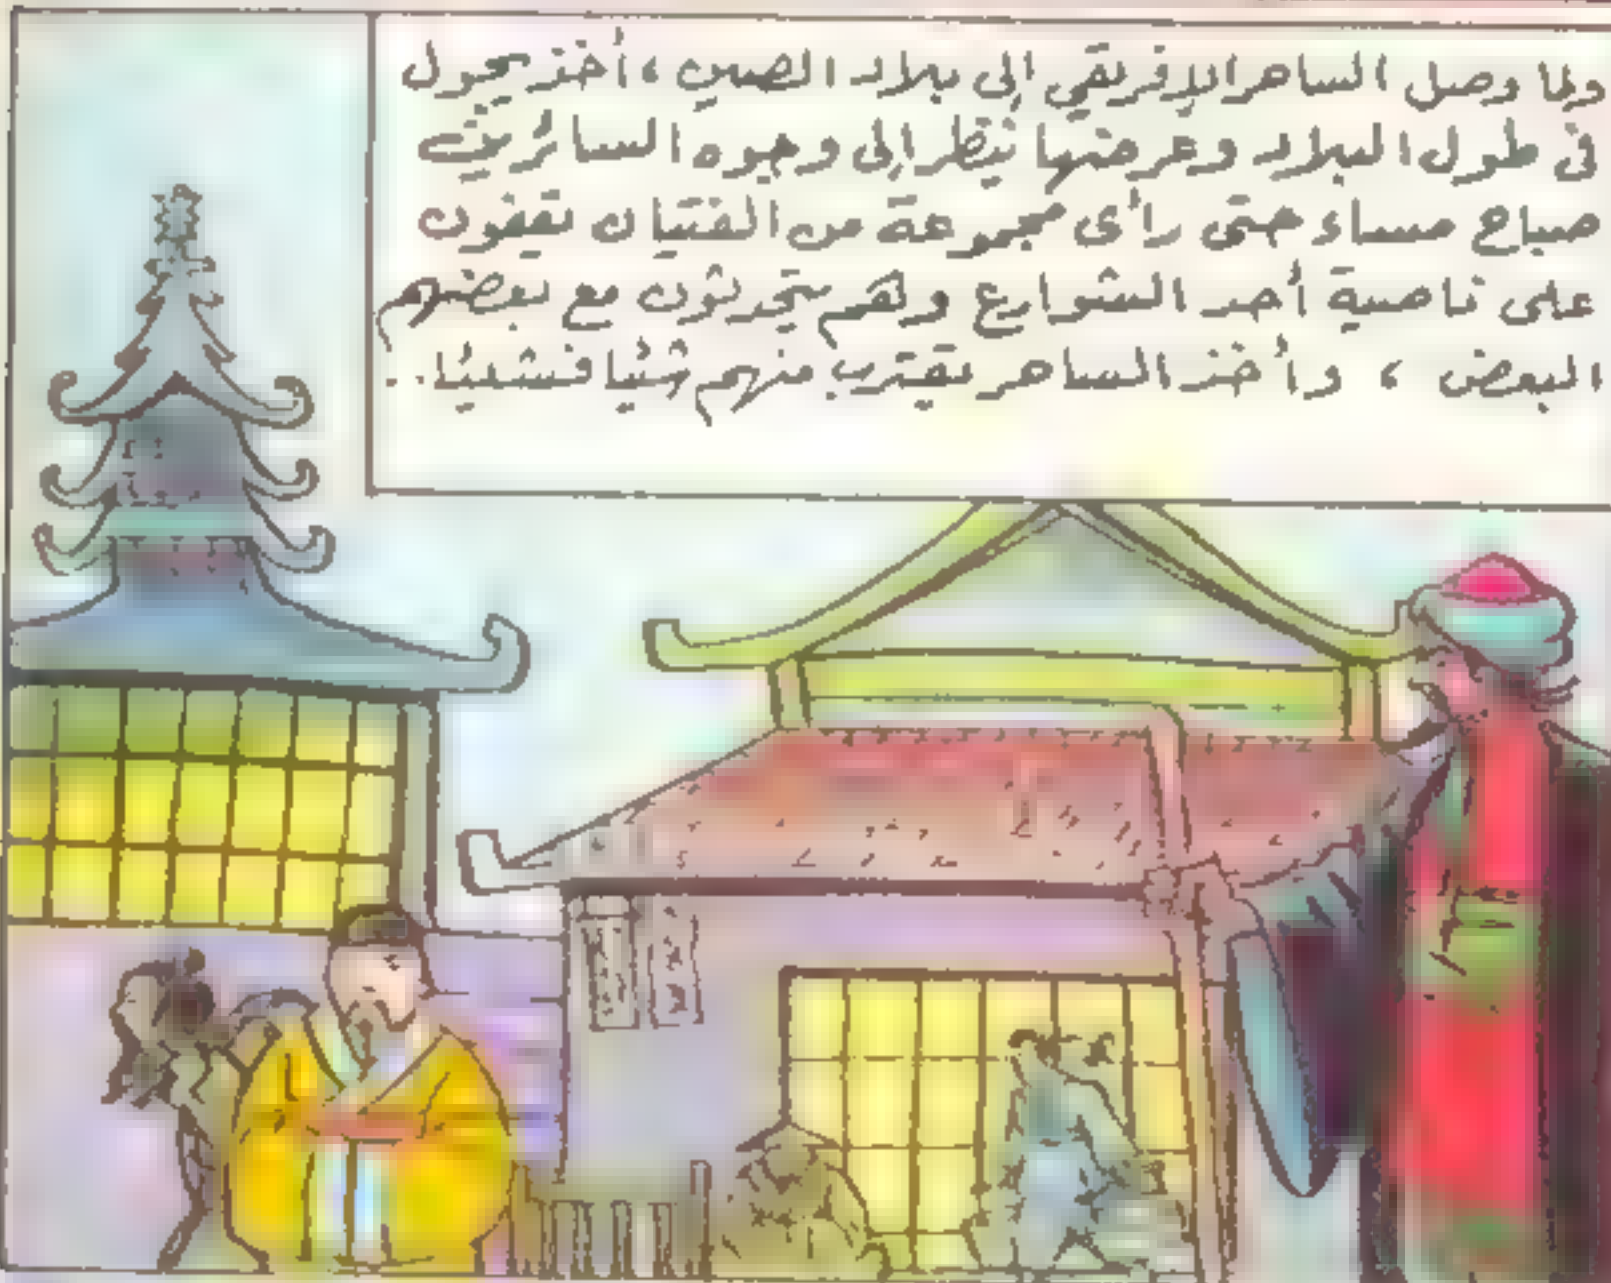 ولما وصل الساحر الإفريقي إلى بلاد الصين ، أخذ يجول
فى طول البلاد وعرضها ينظر إلى وجوه السائرين
صباح مساء حتى رأى مجموعة من الفتيان يقفون
على ناصية أحد الشوارع وهم يتحدثون مع بعضهم
البعض ، وأخذ الساحر يقترب منهم شيئا فشيئا ..